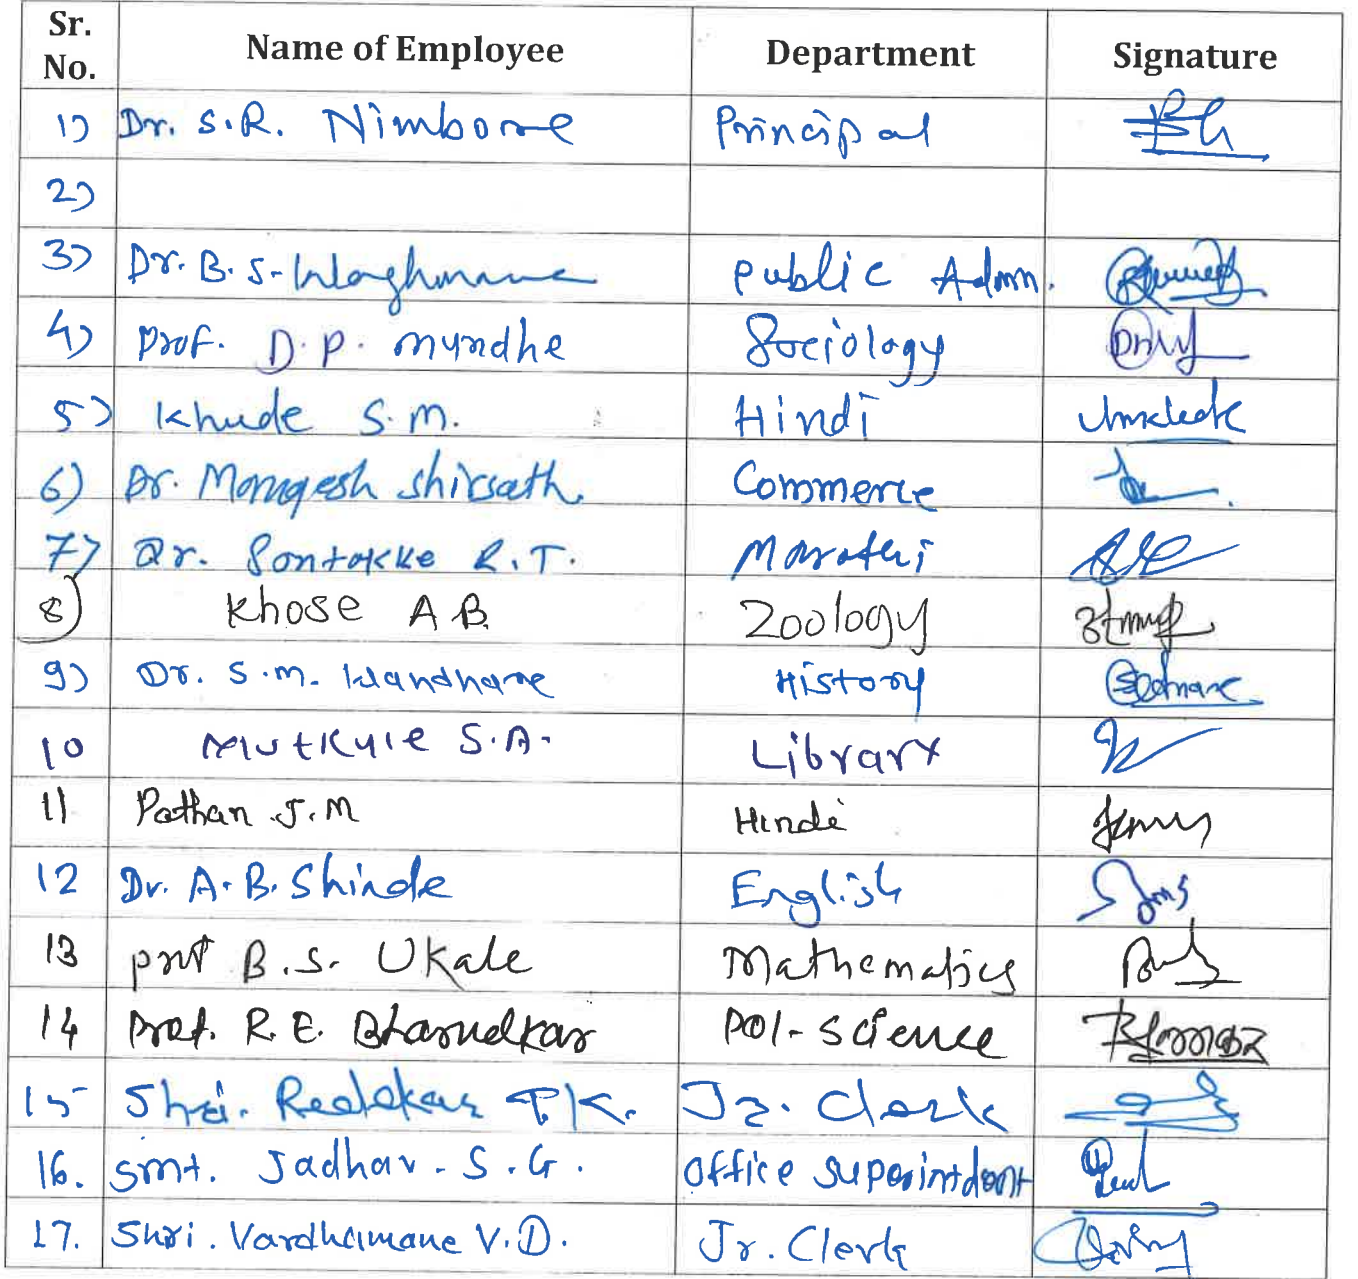 Sr. No. Name of Employee Department Signature
1) Dr. S.R. Nimbore Principal
2)
3) Dr. B. S. Waghmare Public Admn.
4) Prof. D. P. Mundhe Sociology
5) Khude S. M. Hindi
6) Dr. Mangesh Shirsath Commerce
7) Dr. Sontakke R. T. Marathi
8) Khose A B. Zoology
9) Dr. S. M. Wandhare History
10 Mutkule S. A. Library
11 Pathan J. M Hindi
12 Dr. A. B. Shinde English
13 Prof B. S. Ukale Mathematics
14 Prof. R. E. Bharudkar Pol-Science
15 Shri. P. K. Jr. Clerk
16. Smt. Jadhav. S. G. Office Superintdent
17. Shri. Vardhamane V. D. Jr. Clerk